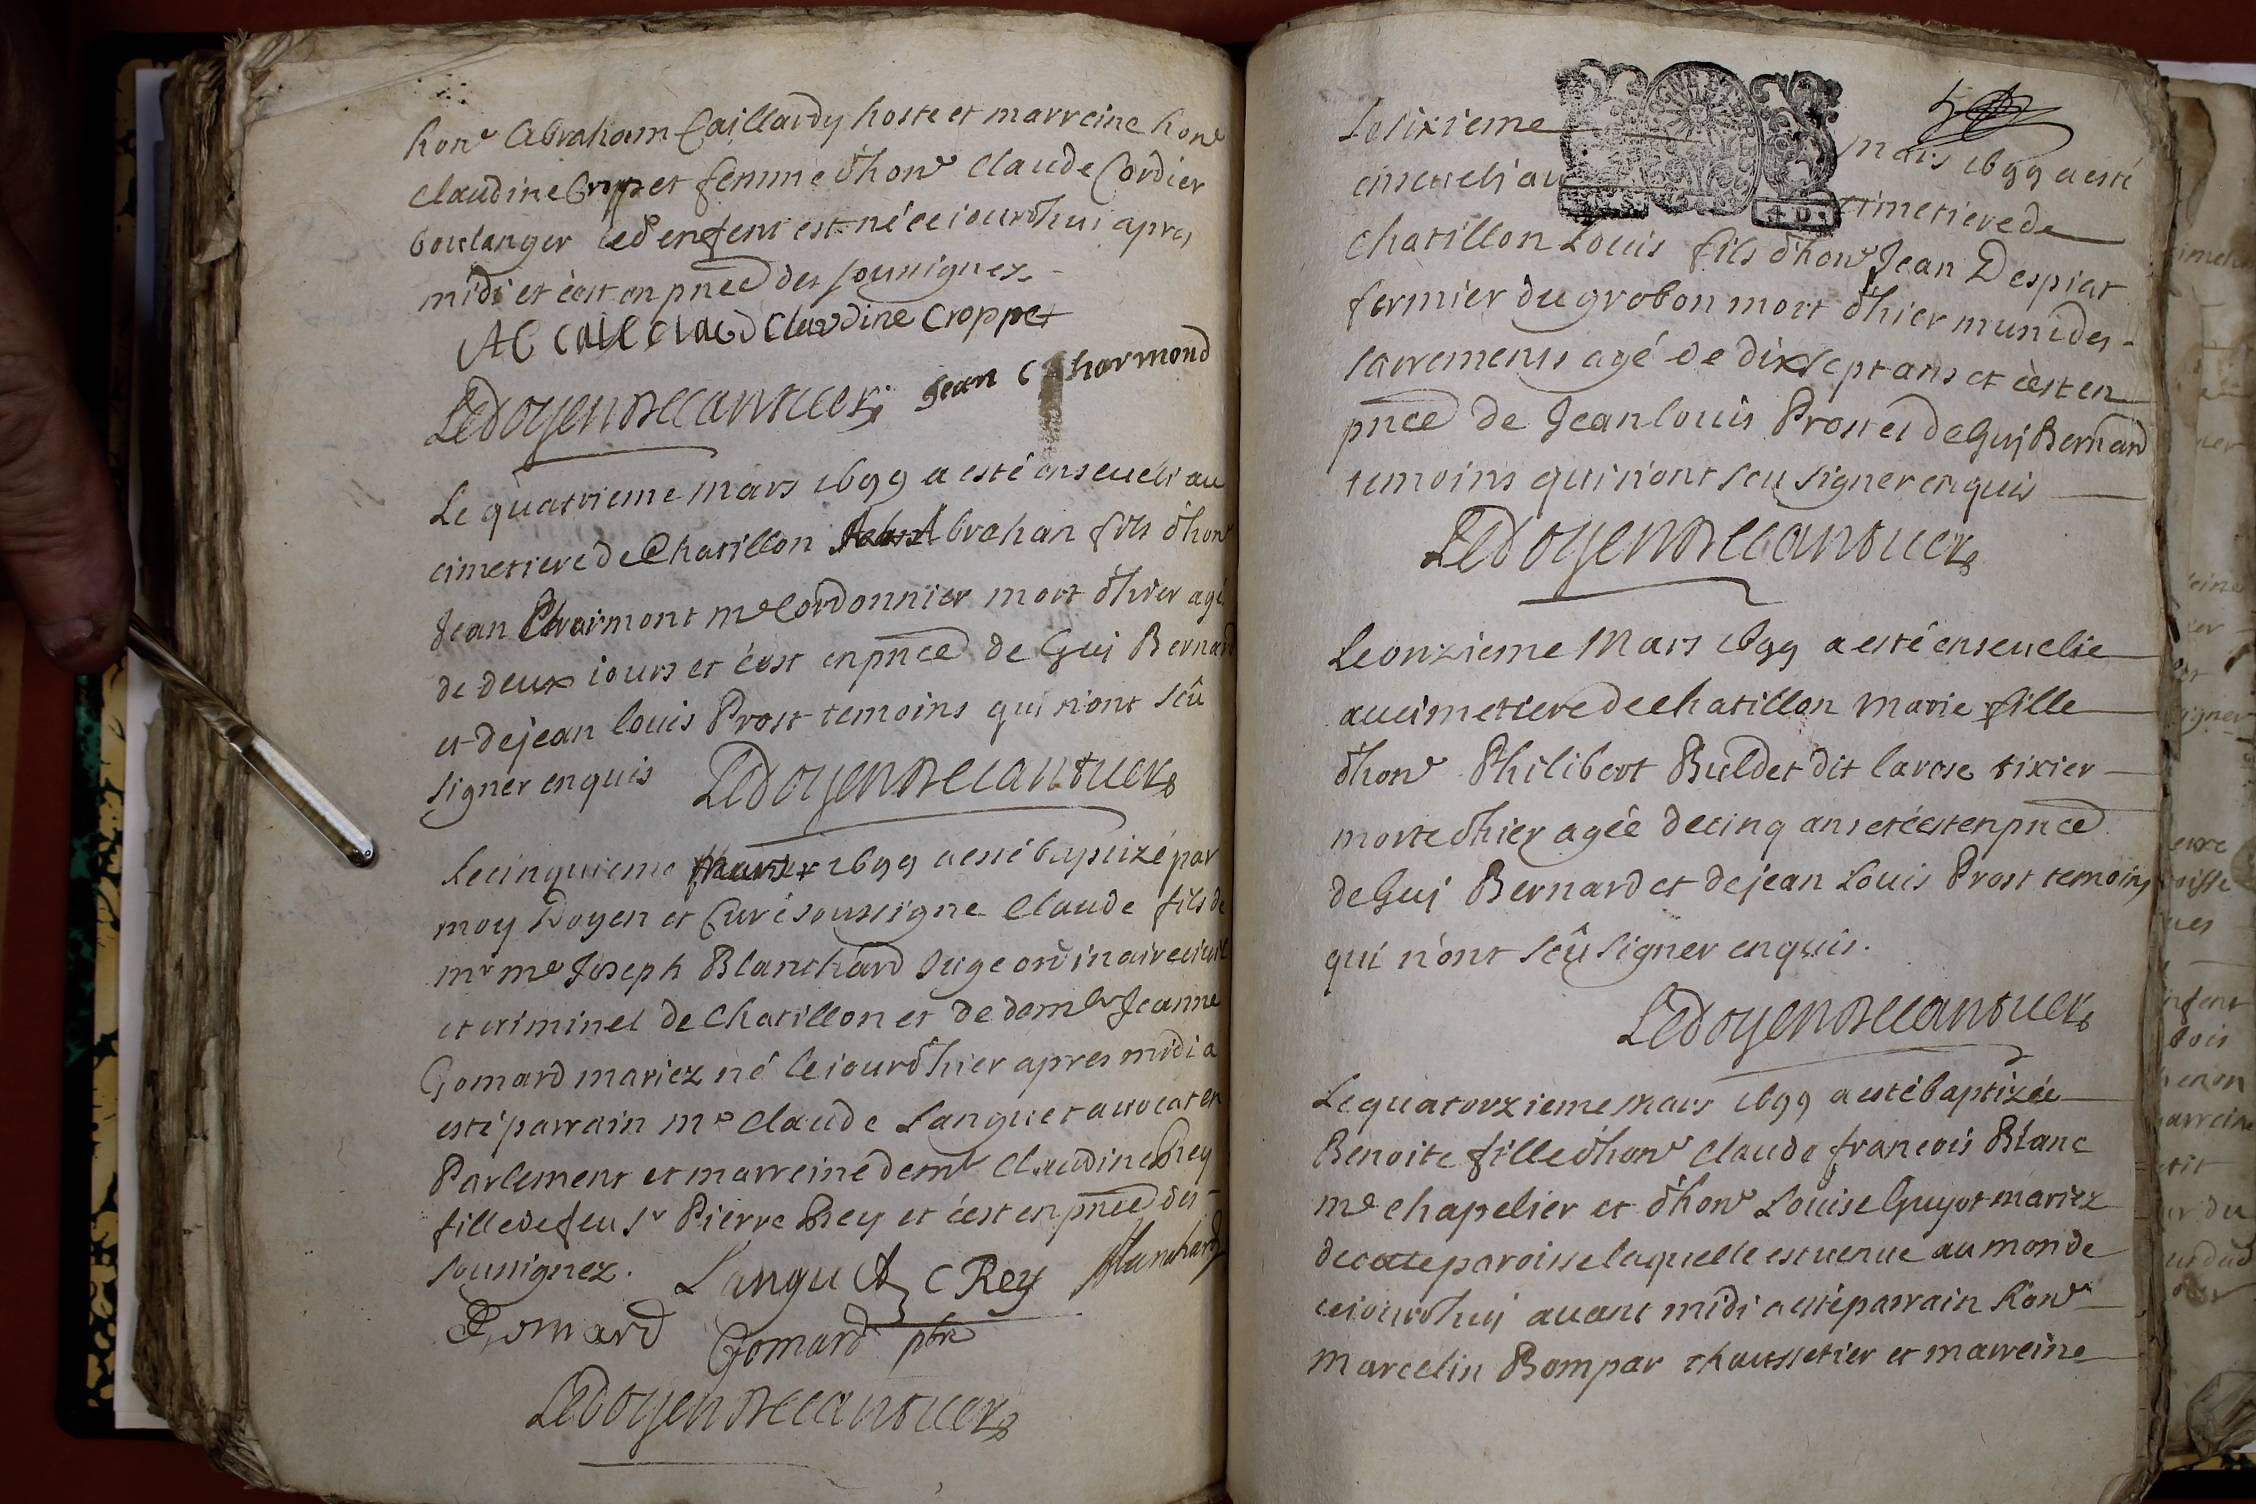 hon^e Abraham Caillardy hoste et marreine hon^e
Claudine Croppet femme d'hon^e Claude Cordier
boulanger led enfent est né ce iourd'huy apres
midi et c'est en pnce des soussignez
AC CAIL CLARD Claudine Croppet
Jean Charmond
Ledoyen de
Le quatrieme mars 1699 a esté enseueli au
cimetiere de Chatillon Abrahan fils d'hon^e
Jean Charmont m^e Cordonnier mort d'hier agé
de deux iours et c'est en pnce de Gui Bernard
et de jean louis Prost temoins qui n'ont sçû
signer enquis Ledoyen de
Le cinquieme mars 1699 a esté baptizé par
moy Doyen et Curé soussigne Claude fils de
m^r m^e Joseph Blanchard Juge ordinaire ciuil
et criminel de Chatillon et de dem^lle Jeanne
Gomard mariez né le iour d'hier apres midi a
esté parrain m^e Claude Languet auocat en
Parlement et marreine dem^lle Claudine Rey
fille de feu s^r Pierre Rey et c'est en pnce des
soussignez. Languet C Rey Blanchard
Gomard Gomard pbr
Ledoyen de
Le sixieme mars 1699 a esté
enseueli au cimetiere de
Chatillon Louis fils d'hon^e Jean Despiat
fermier du grobon mort d'hier muni des
sacrements agé de dix sept ans et c'est en
pnce de Jean louis Prost et de Gui Bernard
temoins qui n'ont sçu signer enquis
Ledoyen de
Le onzieme Mars 1699 a esté enseuelie
au cimetiere de chatillon Marie fille
d'hon^e Philibert Buldet dit larose tixier
morte d'hier agée de cinq ans et c'est en pnce
de Gui Bernard et de jean Louis Prost temoins
qui n'ont sçû signer enquis.
Ledoyen de
Le quatorzieme Mars 1699 a esté baptizée
Benoite fille d'hon^e Claude françois Blanc
m^e chapelier et d'hon^e Louise Guyot mariez
de cette paroisse laquelle est venue au monde
ceiourd'huy auant midi a esté parrain hon^e
Marcelin Bompar chaussetier et marreine